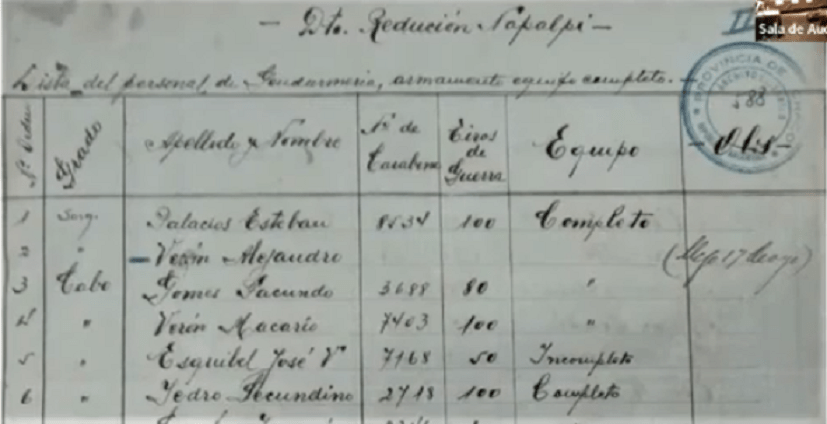 — Dto. Redución Napalpí —
II
Sala de Au
Lista del personal de Gendarmeria, armamento equipo completo. —
PROVINCIA DE
588
Nº Orden Grado Apellido y Nombre Nº de Carabina Tiros de Guerra Equipo — Obs —
1 Sarg. Palacios Esteban 8534 100 Completo
2 " — Verón Alejandro
3 Cabo Gomes Facundo 3688 80 "
4 " Verón Macario 7403 100 "
5 " Esquibel José V 7168 50 Incompleto
6 " Pedro Secundino 2718 100 Completo